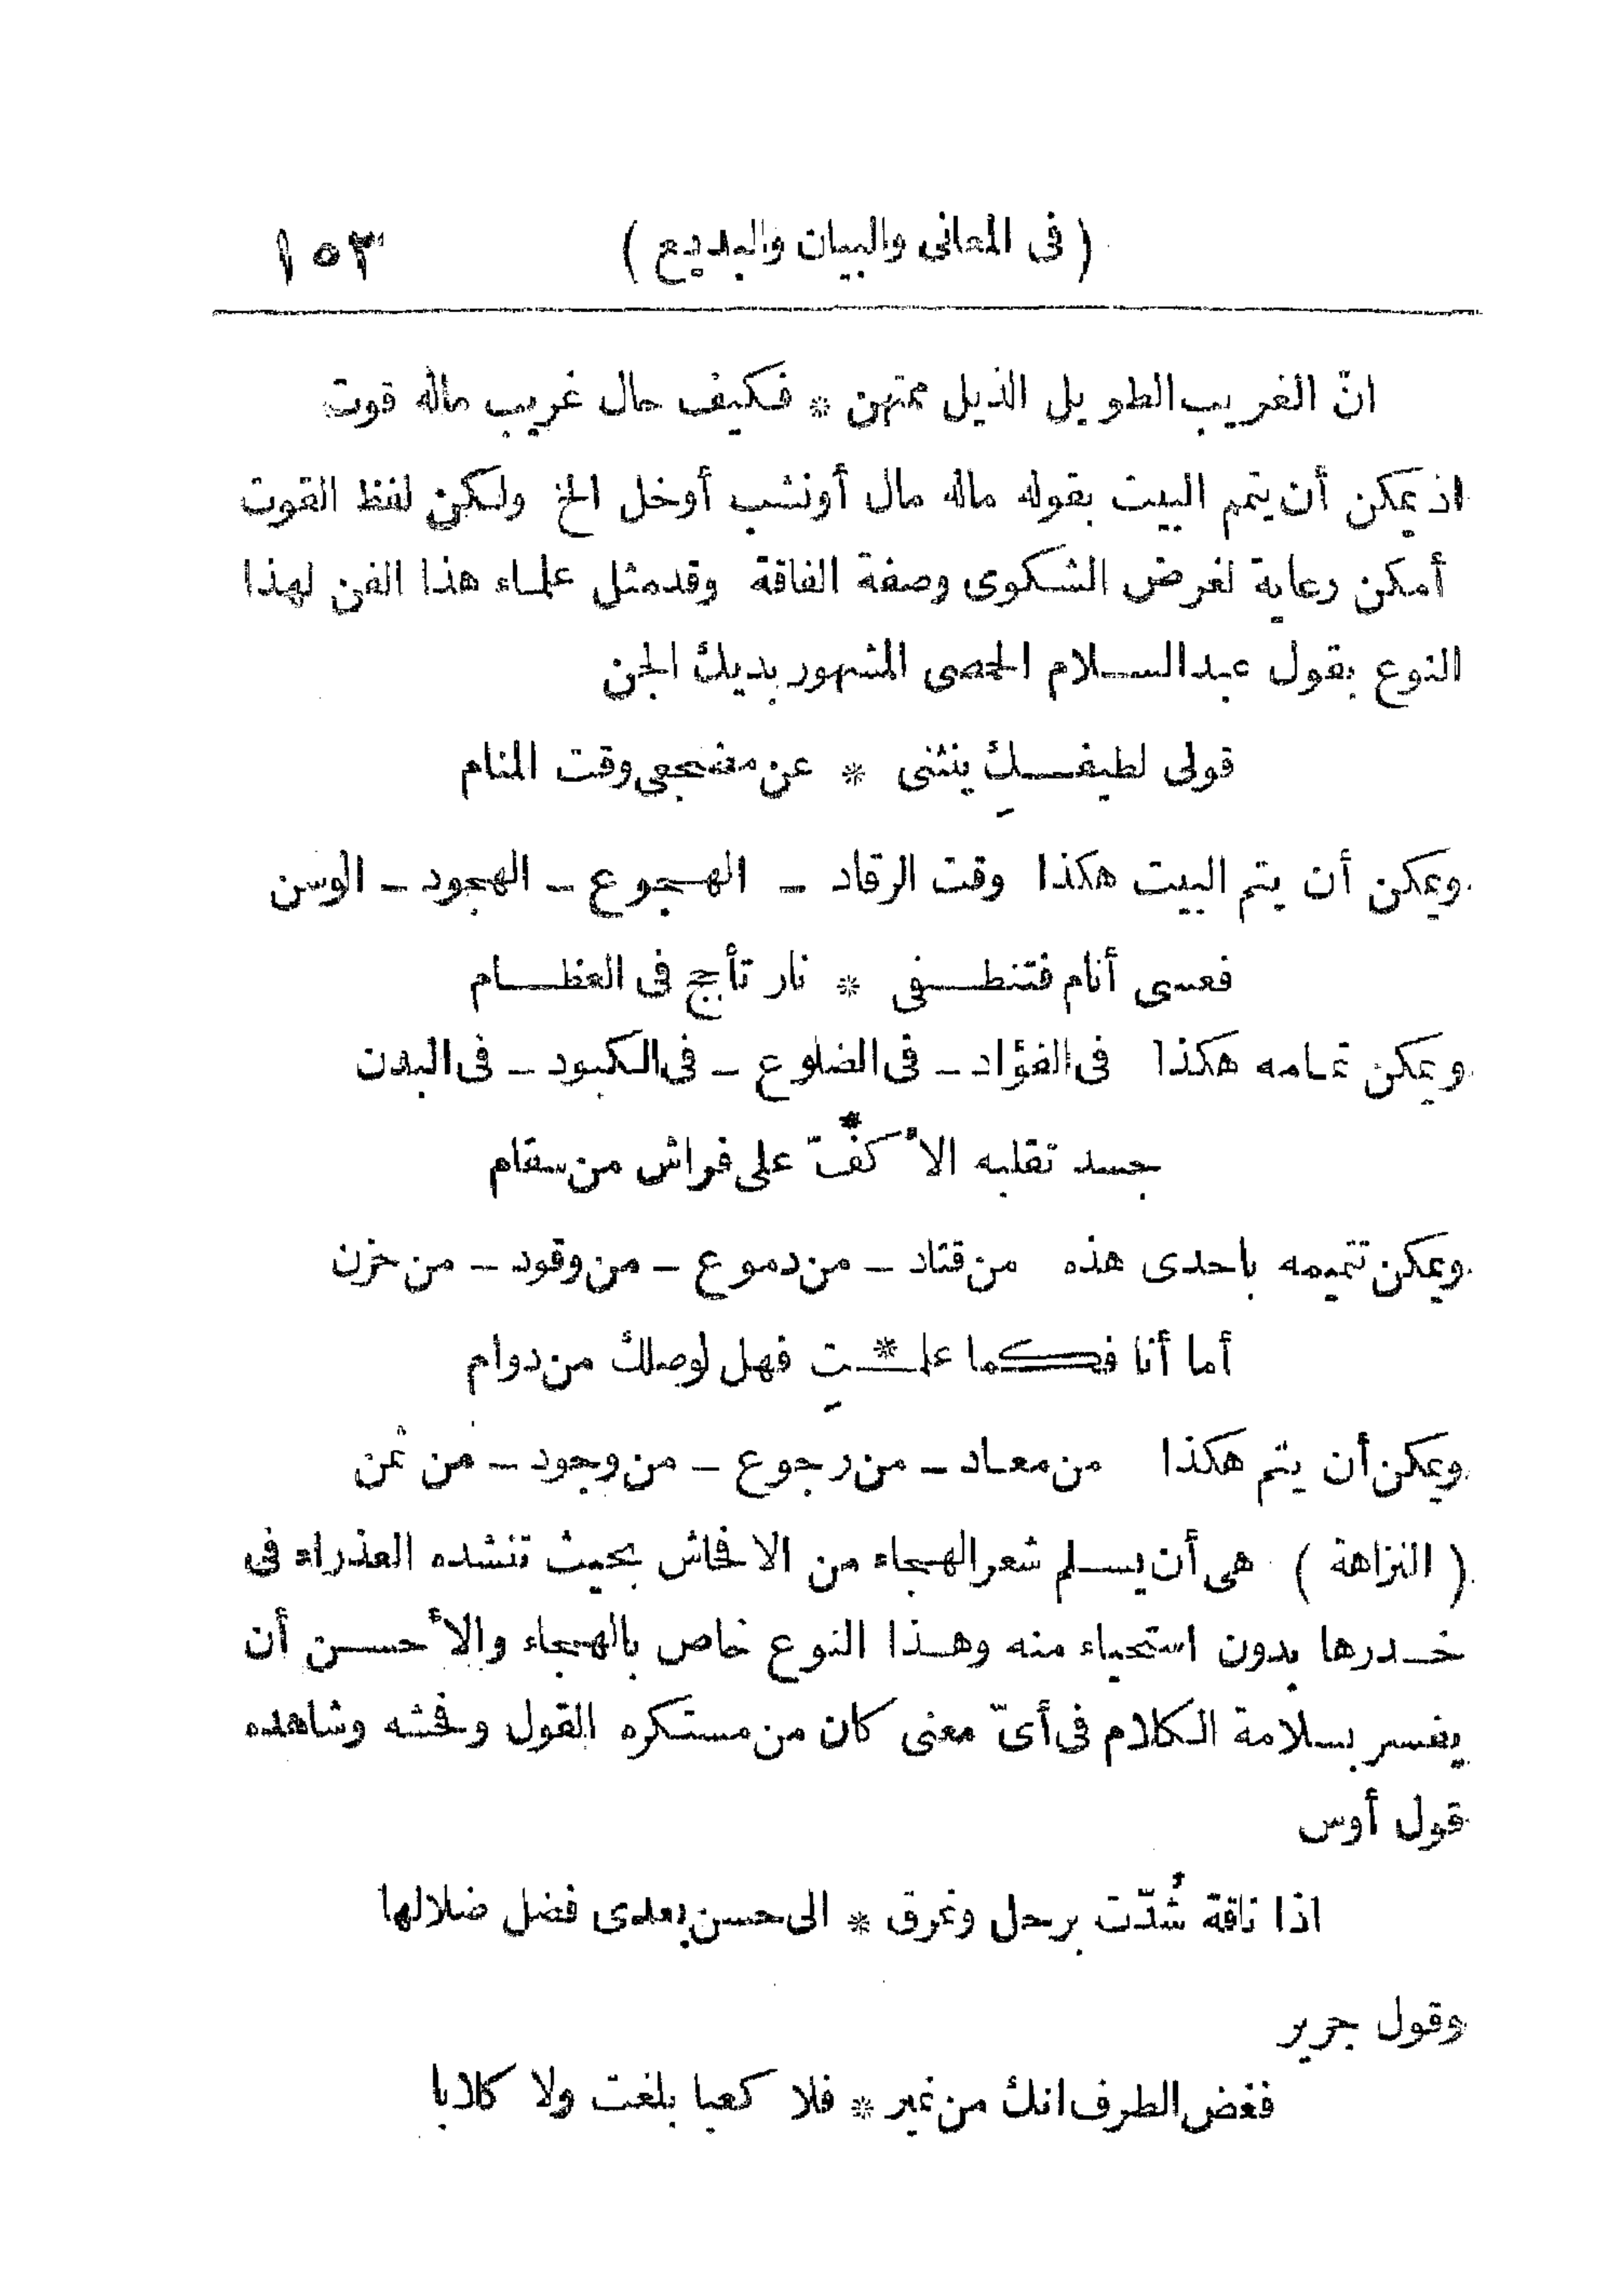 ( فى المعانى والبيان والبديع ) ١٥٣
انّ الغريب الطويل الذيل ممتهن * فكيف حال غريب ماله قوت
اذ يمكن أن يتمم البيت بقوله ماله مال أونشب أوخل الخ ولكن لفظ القوت
أمكن رعاية لغرض الشكوى وصفة الفاقة وقدمثل علماء هذا الفن لهذا
النوع بقول عبد السلام الحمصى المشهور بديك الجن
قولى لطيفكِ ينثنى * عن مضجعى وقت المنام
ويمكن أن يتم البيت هكذا وقت الرقاد – الهجوع – الهجود – الوسن
فعسى أنام فتنطفى * نار تأجج فى العظام
ويمكن تمامه هكذا فى الفؤاد – فى الضلوع – فى الكبود – فى البدن
جسد تقلبه الأكفّ * على فراش من سقام
ويمكن تتميمه باحدى هذه من قتاد – من دموع – من وقود – من حزن
أما أنا فكما علمـ*ـتِ فهل لوصلك من دوام
ويمكن أن يتم هكذا من معاد – من رجوع – من وجود – من ثمن
( النزاهة ) هى أن يسلم شعر الهجاء من الافحاش بحيث تنشده العذراء فى
خدرها بدون استحياء منه وهذا النوع خاص بالهجاء والأحسن أن
يفسر بسلامة الكلام فى أىّ معنى كان من مستكره القول وفحشه وشاهده
قول أوس
اذا ناقة شُدّت برحل ونمرق * الى حسن بعدى فضل ضلالها
وقول جرير
فغض الطرف انك من نمير * فلا كعبا بلغت ولا كلابا